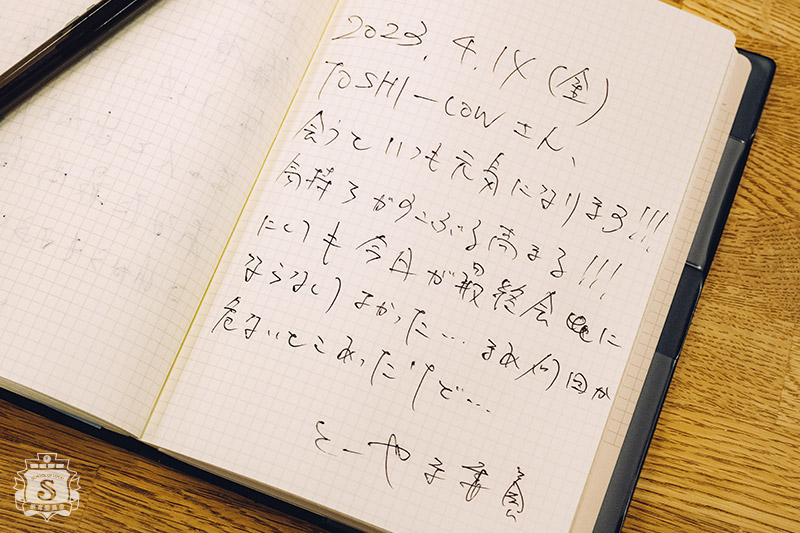 2023.4.14(金)
TOSHI-LOWさん、
会うといつも元気になります!!!
気持ちがすこぶる高まる!!!
にしても今月が最終会に
ならなくてよかった…まぁ何回か
危ないとこあったけど…
とーやま委員
SCHOOL OF LOCK
S